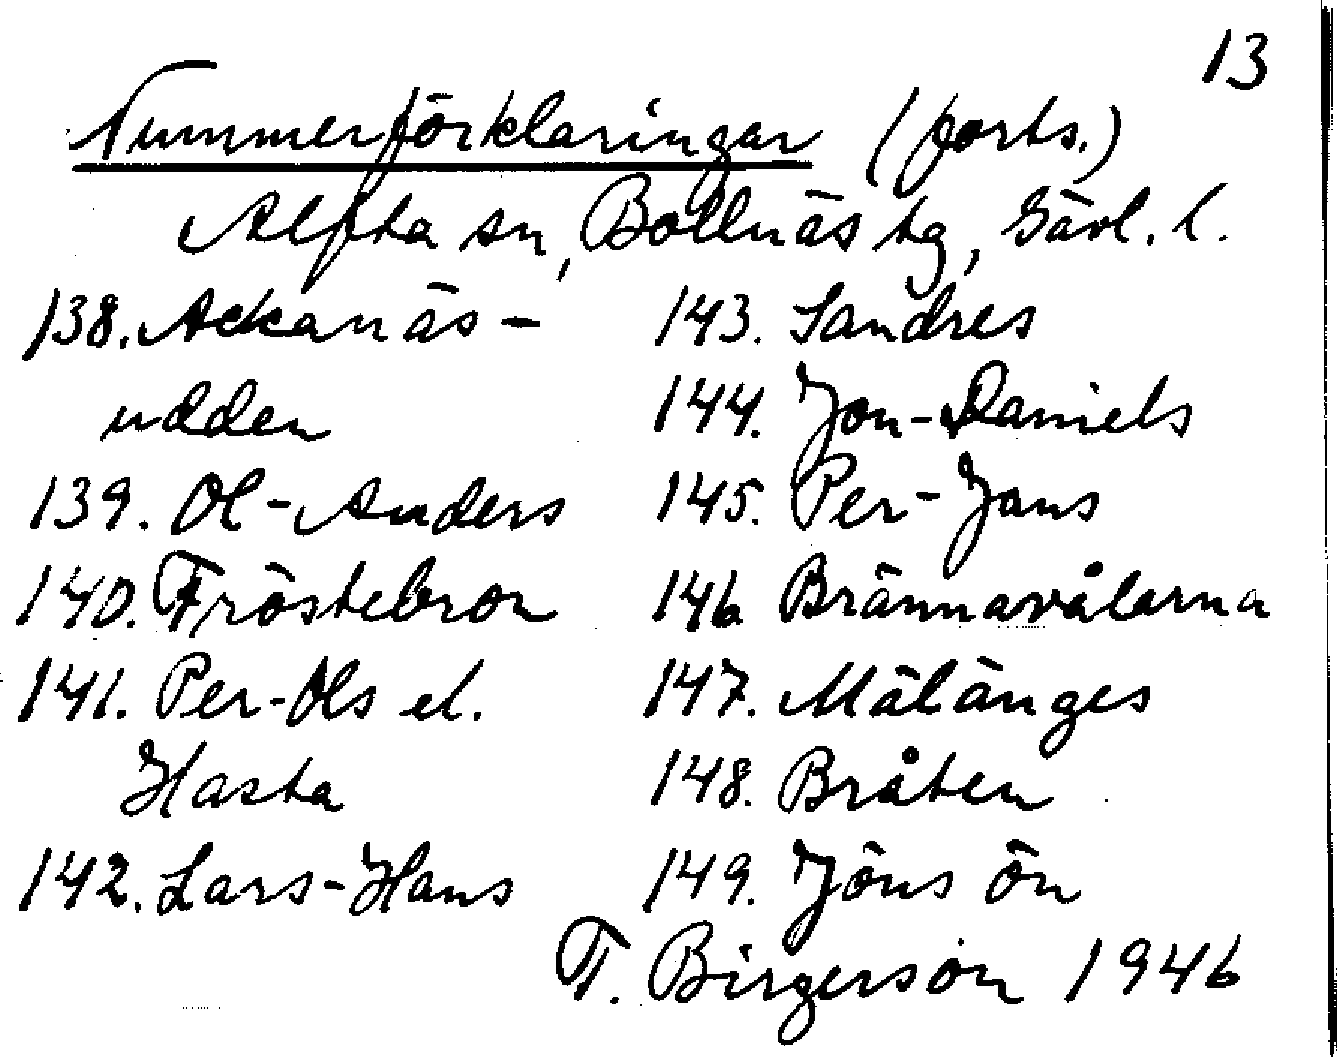 13
Nummerförklaringar (forts.)
Alfta sn, Bollnäs tg, Gävl. l.
138. Ackanäs-
udden
139. Ol-Anders
140. Fröstebron
141. Per-Ols el.
Hasta
142. Lars-Hans
143. Sandres
144. Jon-Daniels
145. Per-Jans
146 Brännavålarna
147. Mälänges
148. Bråten
149. Jöns ön
T. Birgerson 1946